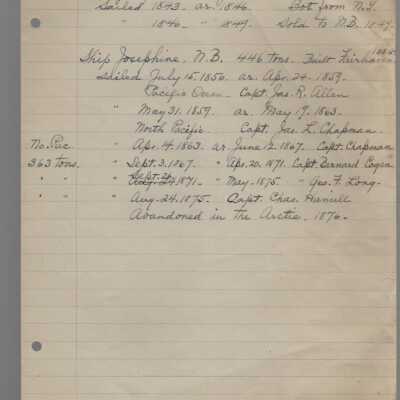 Sailed 1843 ar. 1846. Bot from N.Y.
" 1846 " " 1849. Sold to N.B. 1849.
Ship Josephine, N.B. 446 tons. Built Fairhaven
Sailed July 15-1856. ar. Apr. 24-1859.
Pacific Ocean - Capt. Jas. R. Allen
" May 31. 1859. ar. May 19. 1863.
North Pacific. Capt. Jas. L. Chapman.
No. Pac. " Apr. 4. 1863. ar June 12. 1867. Capt. Chapman
363 tons. " Sept. 3. 1867. " Apr. 20. 1871. Capt. Bernard Cogan
" " " Sept. 26 1871 - " May - 1875. " Geo. F. Long -
" " " Aug - 24. 1875. Capt. Chas.
Abandoned in the Arctic, 1876 -